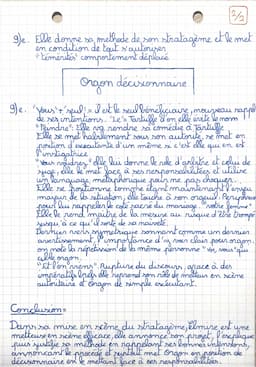 2/2
g)e. Elle donne sa méthode de son stratagème et le met
en condition de tout s'autoriser
"témérités" comportement déplacé
Orgon décisionnaire
g)e. "Vous" + "seul" = il est le seul bénéficiaire, nouveau rappel
de ses intentions. "Le" = Tartuffe d'où elle évite le nom
"feindre": Elle va rendre sa comédie à Tartuffe
Elle se met habilement sous son autorité, se met en
position d'exécutante d'un même si c'est elle qui en est
l'instigatrice
"vous rendre" elle lui donne le rôle d'arbitre et celui de
juge, elle le met face à ses responsabilités et utilise
un langage métaphorique pour ne pas choquer.
Elle se positionne comme étant maintenant l'enjeu
majeur de la situation, elle touche à son orgueil.
pour lui rappeler le côté sacré du mariage. "votre femme"
Elle le rend maître de la mesure au risque d'être trompé
jusqu'à ce qu'il soit de sa naïveté.
Derniers vers symétrique sonnant comme un dernier
avertissement, l'importance d'y voir clair pour orgon.
on note la répétition de la même personne "vous" qui
cible orgon.
"Et l'on vient" Rupture du discours, grâce à des
impératifs brefs elle reprend son rôle de metteur en scène
autoritaire et Orgon de simple exécutant.
Conclusion =
Dans sa mise en scène du stratagème, Elmire est une
metteuse en scène efficace, elle annonce son projet, l'explique
puis justifie sa méthode en rappelant ses bonnes intentions,
annonçant le procédé et surtout met Orgon en position de
décisionnaire en le mettant face à ses responsabilités.